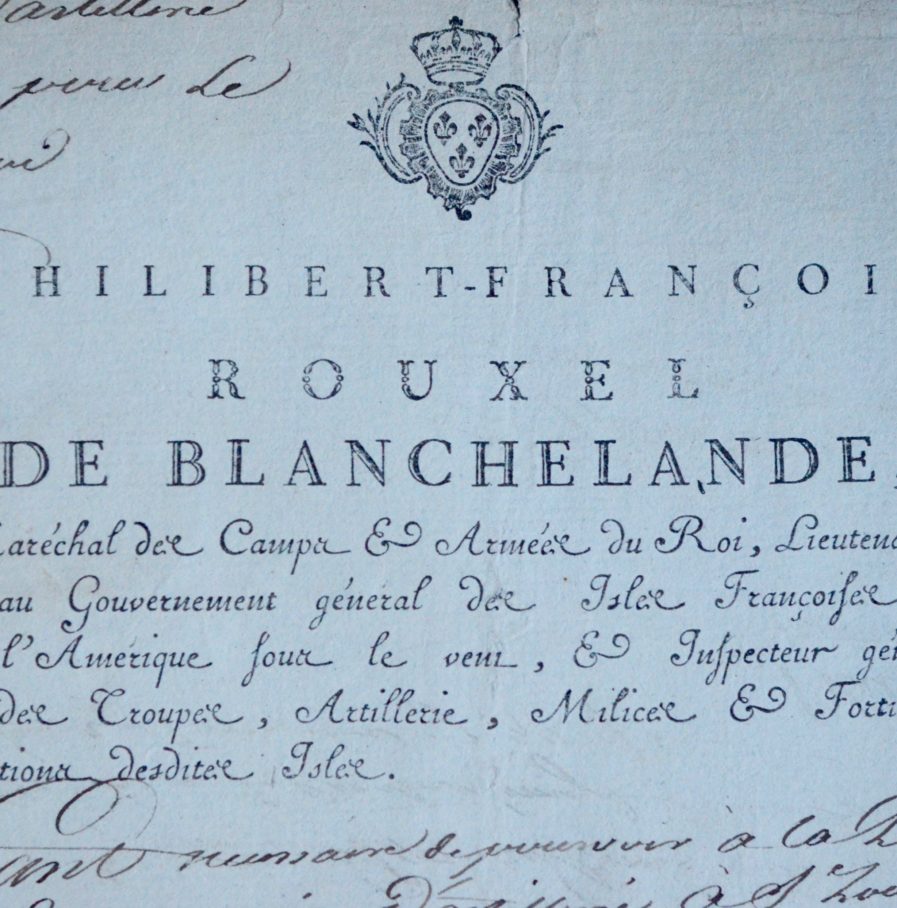 d'artillerie
pour Le
HILIBERT-FRANÇOI
ROUXEL
DE BLANCHELANDE,
aréchal des Camps & Armées du Roi, Lieutena
au Gouvernement général des Isles Françoiſes
l'Amérique ſous le vent, & Inſpecteur gén
des Troupes, Artillerie, Milices & Forti
tions desdites Isles.
ant necessaire de pourvoir à la
à St